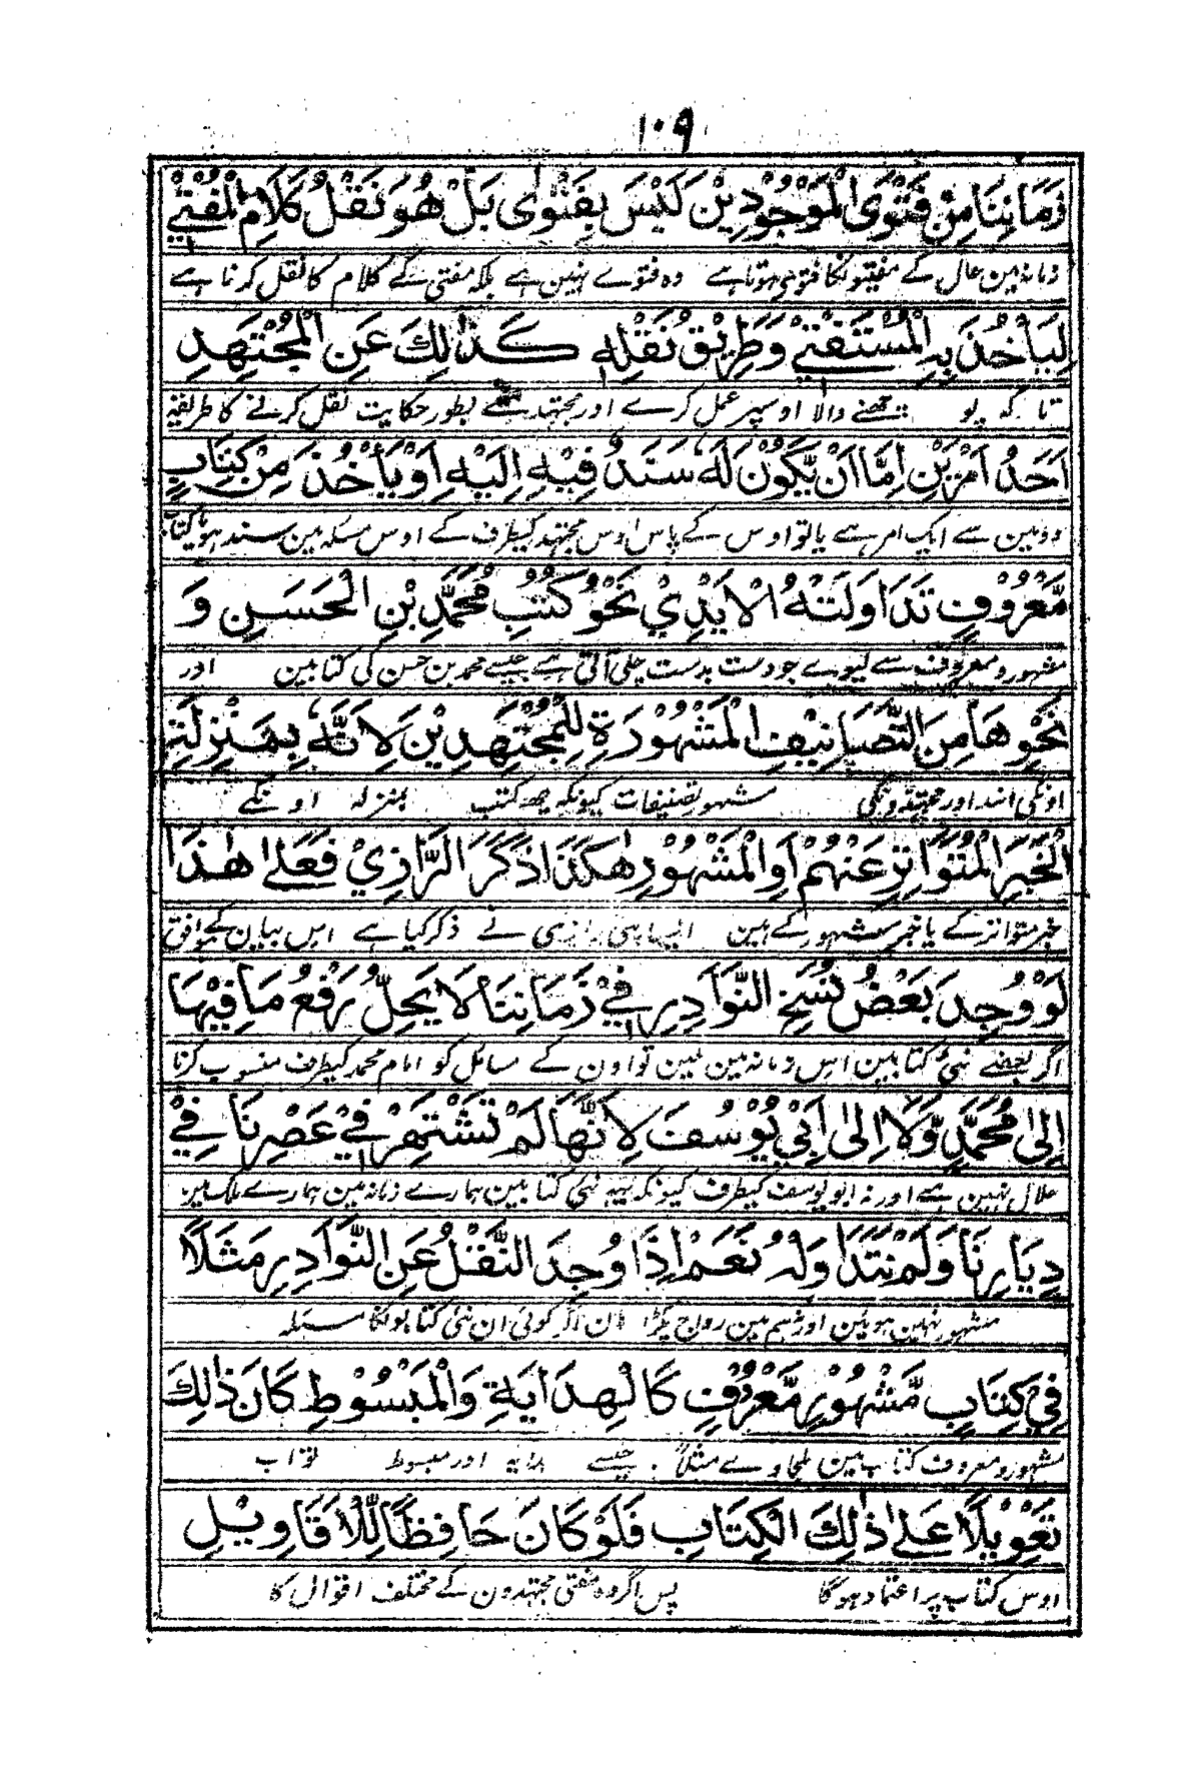 ۱۰۹
زَمَانِنَا مِنْ فَتْوَى الْمَوْجُوْدِيْنَ لَيْسَ بِفَتْوٰى بَلْ هُوَ نَقْلُ كَلَامِ الْمُفْتِيْ
زمانہ مین حال کے مفتیونکا فتوی ہوتا ہے وہ فتوے نہین ہے بلکہ مفتی کے کلام کا نقل کرنا ہے
لِيَأْخُذَ بِهِ الْمُسْتَفْتِيْ وَطَرِيْقُ نَقْلِهٖ كَذٰلِكَ عَنِ الْمُجْتَهِدِ
تا کہ پو چھنے والا اوسپر عمل کرے اور مجتہد سے بطور حکایت نقل کرنے کا طریقہ
اَحَدُ اَمْرَيْنِ اِمَّا اَنْ يَّكُوْنَ لَهٗ سَنَدٌ فِيْهِ اِلَيْهِ اَوْ يَأْخُذَ مِنْ كِتَابٍ
دومین سے ایک امر ہے یا تو اوس کے پاس اوس مجتہد کیطرف کے اوس مسئلہ مین سند ہو یا کتاب
مَّعْرُوْفٍ تَدَاوَلَتْهُ الْاَيْدِيْ نَحْوُ كُتُبِ مُحَمَّدِ بْنِ الْحَسَنِ وَ
مشہور و معروف سے لیوے جو دست بدست چلی آتی ہے جیسے محمد بن حسن کی کتابین اور
نَحْوِهَا مِنَ التَّصَانِيْفِ الْمَشْهُوْرَةِ لِلْمُجْتَهِدِيْنَ لِاَنَّهٗ بِمَنْزِلَةِ
اونکی انند اور مجتہدونکی مشہور تصنیفات کیونکہ یہہ کتب بمنزلہ اونکے
الْخَبَرِ الْمُتَوَاتِرِ عَنْهُمْ اَوِ الْمَشْهُوْرِ هٰكَذَا ذَكَرَ الرَّازِيْ فَعَلٰى هٰذَا
خبر متواتر کے یا خبر مشہور کے ہین ایسا ہی رازی نے ذکر کیا ہے اس بیان کے موافق
لَوْ وُجِدَ بَعْضُ نُسَخِ النَّوَادِرِ فِيْ زَمَانِنَا لَا يَحِلُّ رَفْعُ مَا فِيْهَا
اگر بعضے نئی کتابین اس زمانہ مین لمین تو اون کے مسائل کو امام محمد کیطرف منسوب کرنا
اِلٰى مُحَمَّدٍ وَّلَا اِلٰى اَبِيْ يُوْسُفَ لِاَنَّهَا لَمْ تَشْتَهِرْ فِيْ عَصْرِنَا فِيْ
حلال نہین ہے اور نہ ابو یوسف کیطرف کیونکہ یہہ نئی کتابین ہمارے زمانہ مین ہمارے ملک مین
دِيَارِنَا وَلَمْ تَتَدَاوَلْهُ نَعَمْ اِذَا وُجِدَ النَّقْلُ عَنِ النَّوَادِرِ مَثَلًا
مشہور نہین ہوئین اور نہ ہم مین رواج پکڑا ہان اگر کوئی ان نئی کتابونکا مسئلہ
فِيْ كِتَابٍ مَّشْهُوْرٍ مَّعْرُوْفٍ كَالْهِدَايَةِ وَالْمَبْسُوْطِ كَانَ ذٰلِكَ
مشہور و معروف کتاب مین ملجاوے مثلاً جیسے ہدایہ اور مبسوط تو اب
تَعْوِيْلًا عَلٰى ذٰلِكَ الْكِتَابِ فَلَوْ كَانَ حَافِظًا لِّلْاَقَاوِيْلِ
اوس کتاب پر اعتماد ہو گا پس اگر وہ مفتی مجتہدون کے مختلف اقوال کا